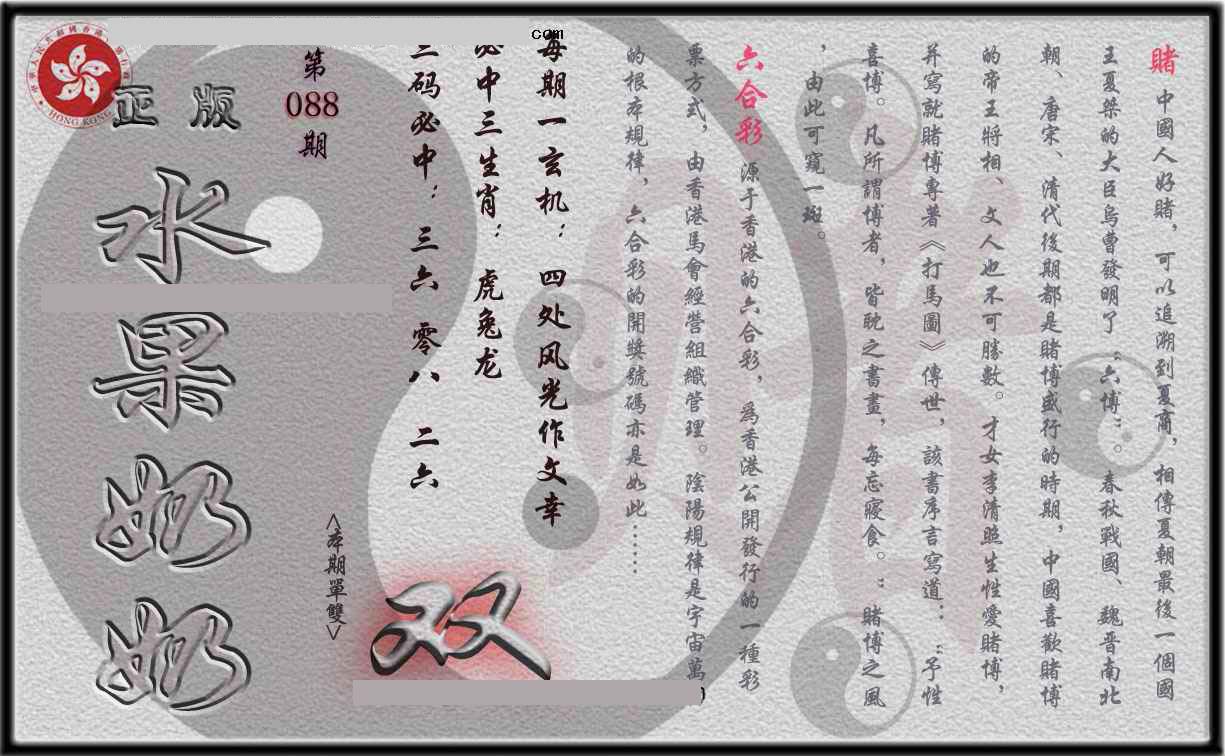 賭 中國人好賭，可以追溯到夏商，相傳夏朝最後一個國
王夏桀的大臣烏曹發明了“六博”。春秋戰國、魏晋南北
朝、唐宋、清代後期都是賭博盛行的時期，中國喜歡賭博
的帝王將相、文人也不可勝數。才女李清照生性愛賭博，
并寫就賭博專著《打馬圖》傳世，該書序言寫道：：“予性
喜博。凡所謂博者，皆耽之書晝，每忘寢食。：賭博之風
，由此可窺一斑。
六合彩 源于香港的六合彩，爲香港公開發行的一種彩
票方式，由香港馬會經營組織管理。陰陽規律是宇宙萬
的根本規律，六合彩的開獎號碼亦是如此……
每期一玄机：四处风光作文幸
必中三生肖：虎兔龙
三码必中：三六 零八 二六
<本期單雙>
双
第
088
期
正版
水果奶奶
com
HONG KONG